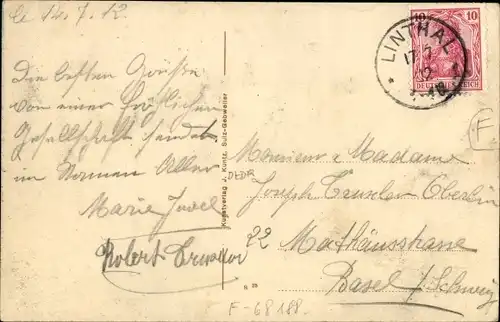 7. 12.
Die besten Grüsse
von einer fröhlichen
Gesellschaft sendet
im Namen Aller
Marie
Robert
Kunstverlag J. Kuntz, Sulz-Gebweiler
10 10
DEUTSCHES REICH
LINTHAL
Monsieur & Madame
Joseph Oberlin
22 Mathäusstrasse
Basel / Schweiz
F-68188.
F